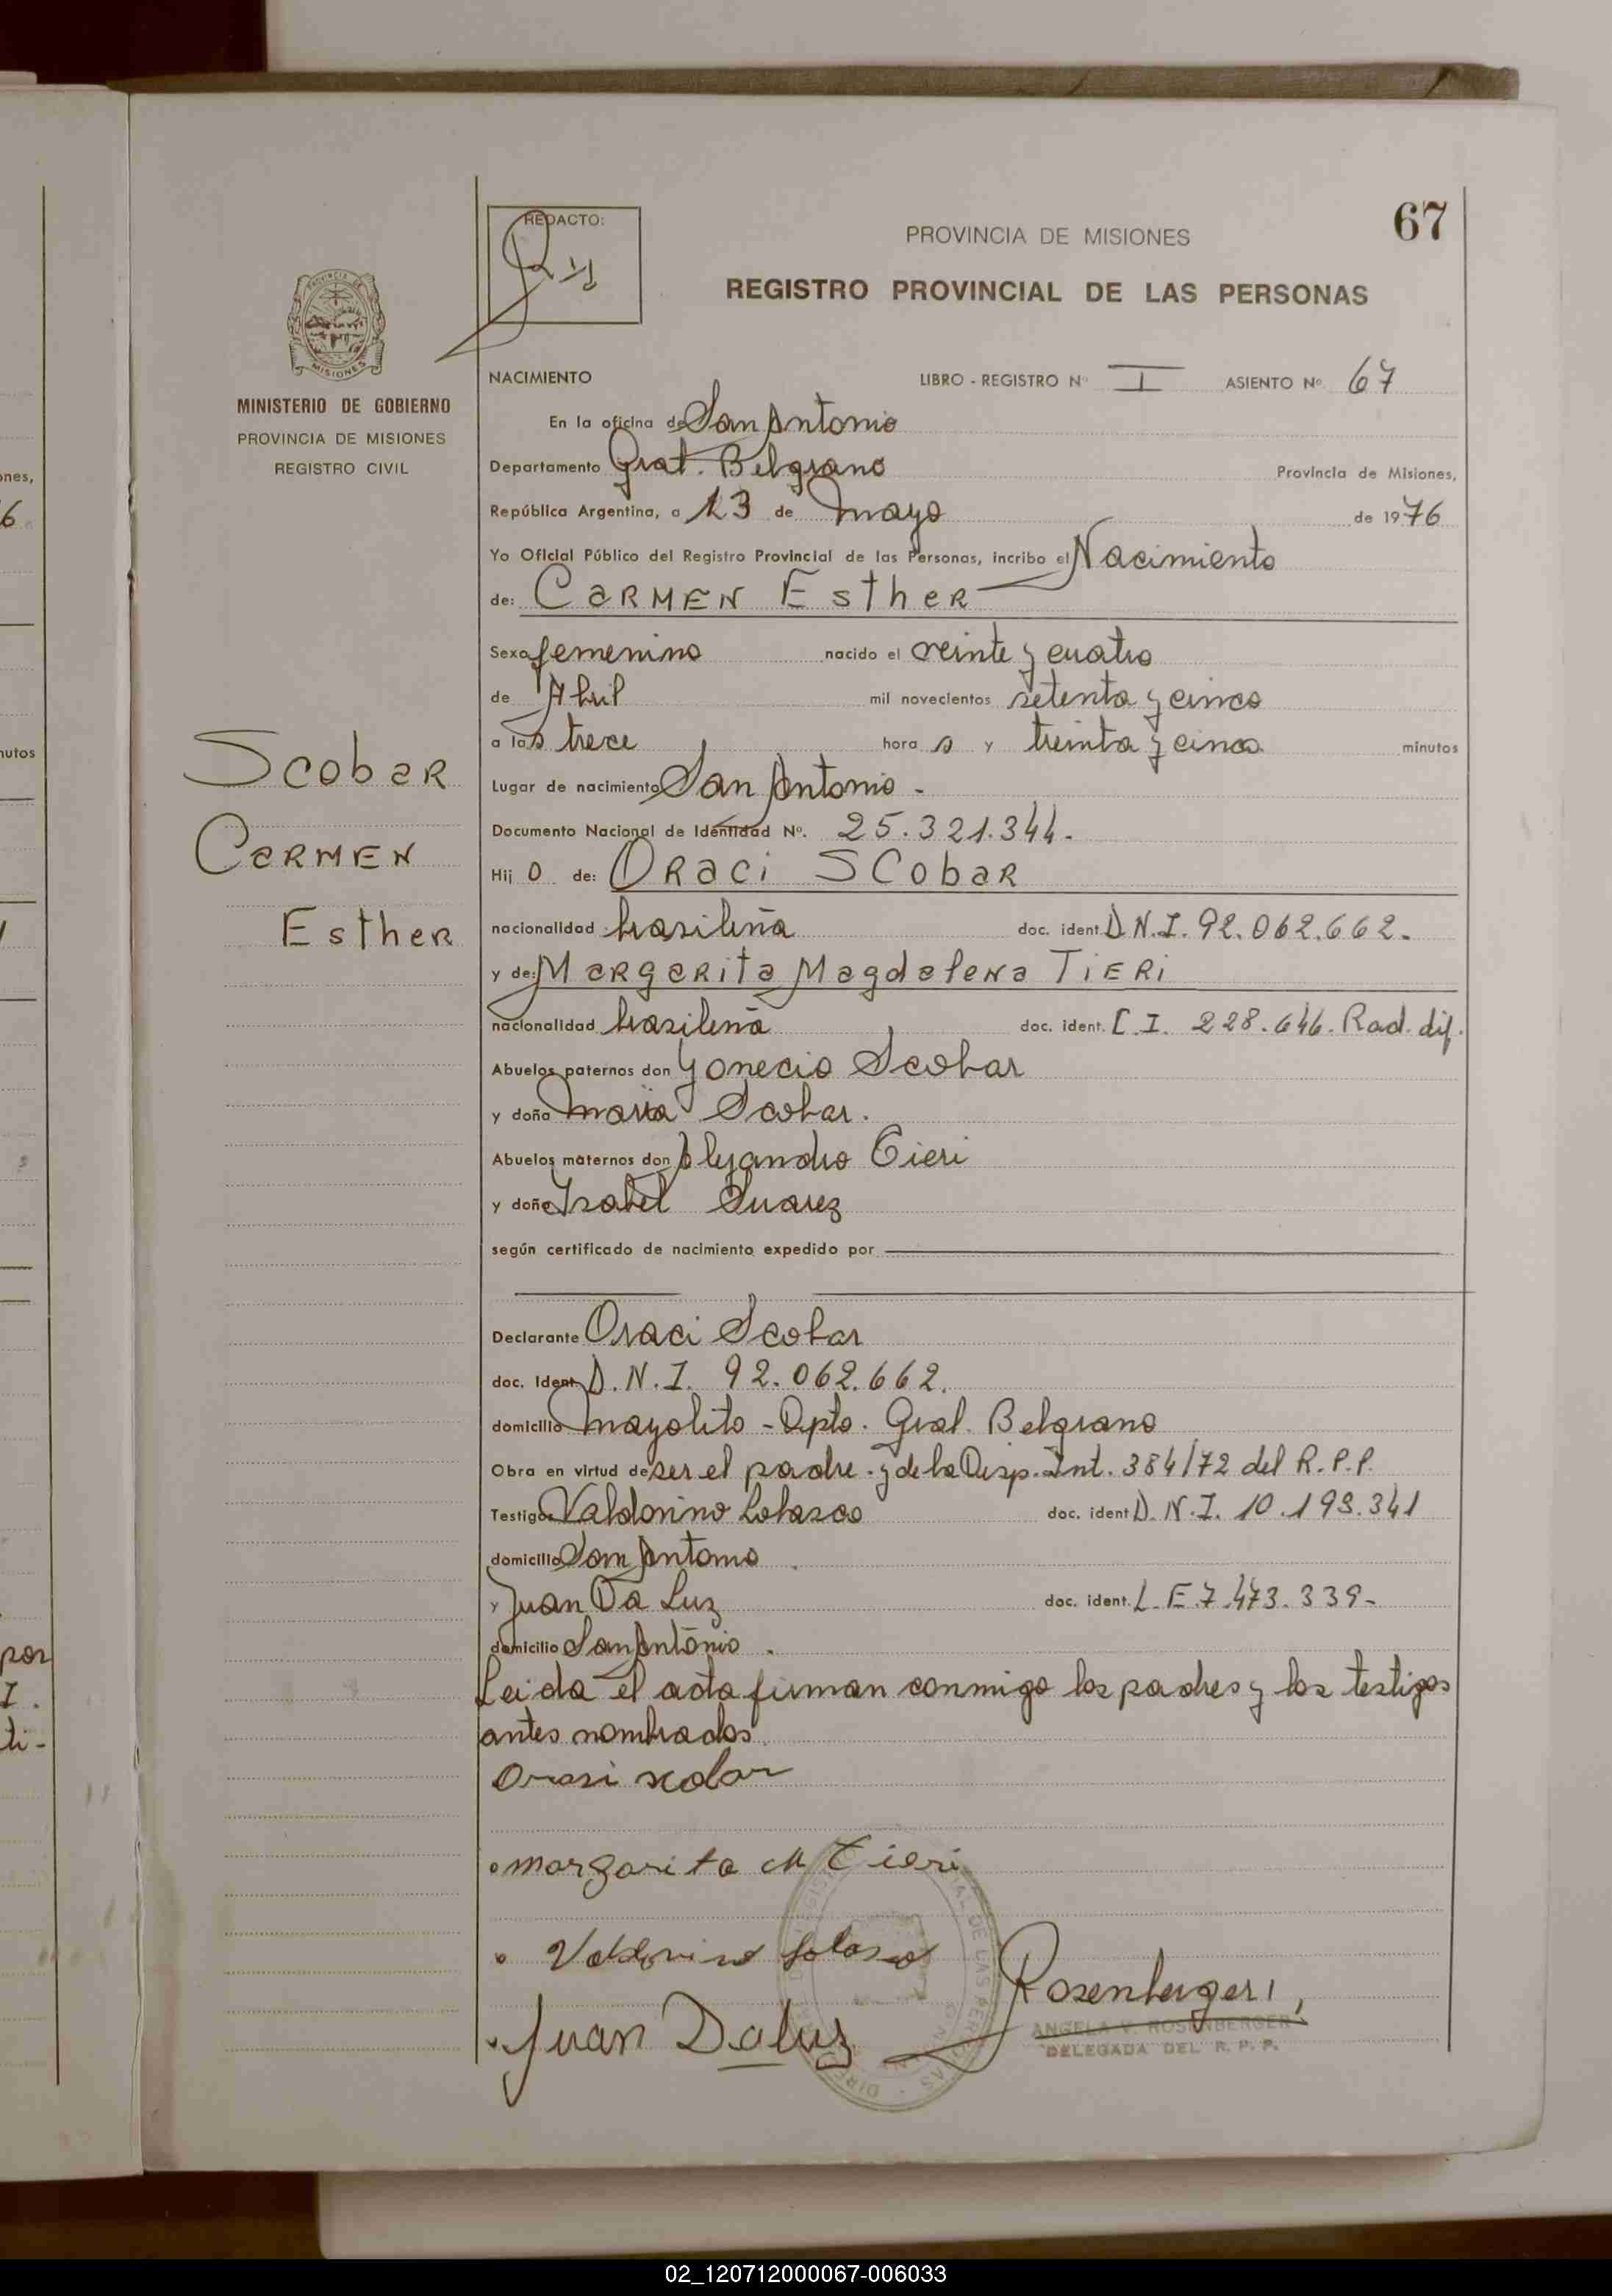 67
REDACTO:
PROVINCIA DE MISIONES
REGISTRO PROVINCIAL DE LAS PERSONAS
PROVINCIA DE
MISIONES
MINISTERIO DE GOBIERNO
PROVINCIA DE MISIONES
REGISTRO CIVIL
NACIMIENTO LIBRO - REGISTRO Nº I ASIENTO Nº 67
En la oficina de San Antonio
Departamento Gral. Belgrano Provincia de Misiones,
República Argentina, a 13 de mayo de 1976
Yo Oficial Público del Registro Provincial de las Personas, incribo el Nacimiento
de: CARMEN Esther
Sexo femenino nacido el veinte y cuatro
de Abril mil novecientos setenta y cinco
a las trece hora s y treinta y cinco minutos
Scobar
Carmen
Esther
Lugar de nacimiento San Antonio -
Documento Nacional de Identidad Nº. 25.321.344.
Hij o de: ORaci SCobaR
nacionalidad brasileña doc. ident. D.N.I. 92.062.662.
y de: Margarita Magdalena TiERi
nacionalidad brasileña doc. ident. C.I. 228.646. Rad. dif.
Abuelos paternos don Yonecio Scobar
y doña Maria Scobar.
Abuelos maternos don Alejandro Tieri
y doña Isabel Suarez
según certificado de nacimiento expedido por
Declarante Oraci Scobar
doc. Ident. D.N.I. 92.062.662.
domicilio Mayolito - Dpto. Gral. Belgrano
Obra en virtud de ser el padre. y de la Disp. Int. 384/72 del R.P.P.
Testigos Valdonino Lobasco doc. ident. D.N.I. 10.193.341
domicilio San Antonio
y Juan Da Luz doc. ident. L.E 7.473.339-
domicilio San Antonio.
Leida el acta firman conmigo los padres y los testigos
antes nombrados.
Orasi scobar
margarita M Tieri
Juan Daluz
Rosenberger
ANGELA V. ROSENBERGER
DELEGADA DEL R. P. P.
ones,
6
nutos
por
I.
ti-
02_120712000067-006033